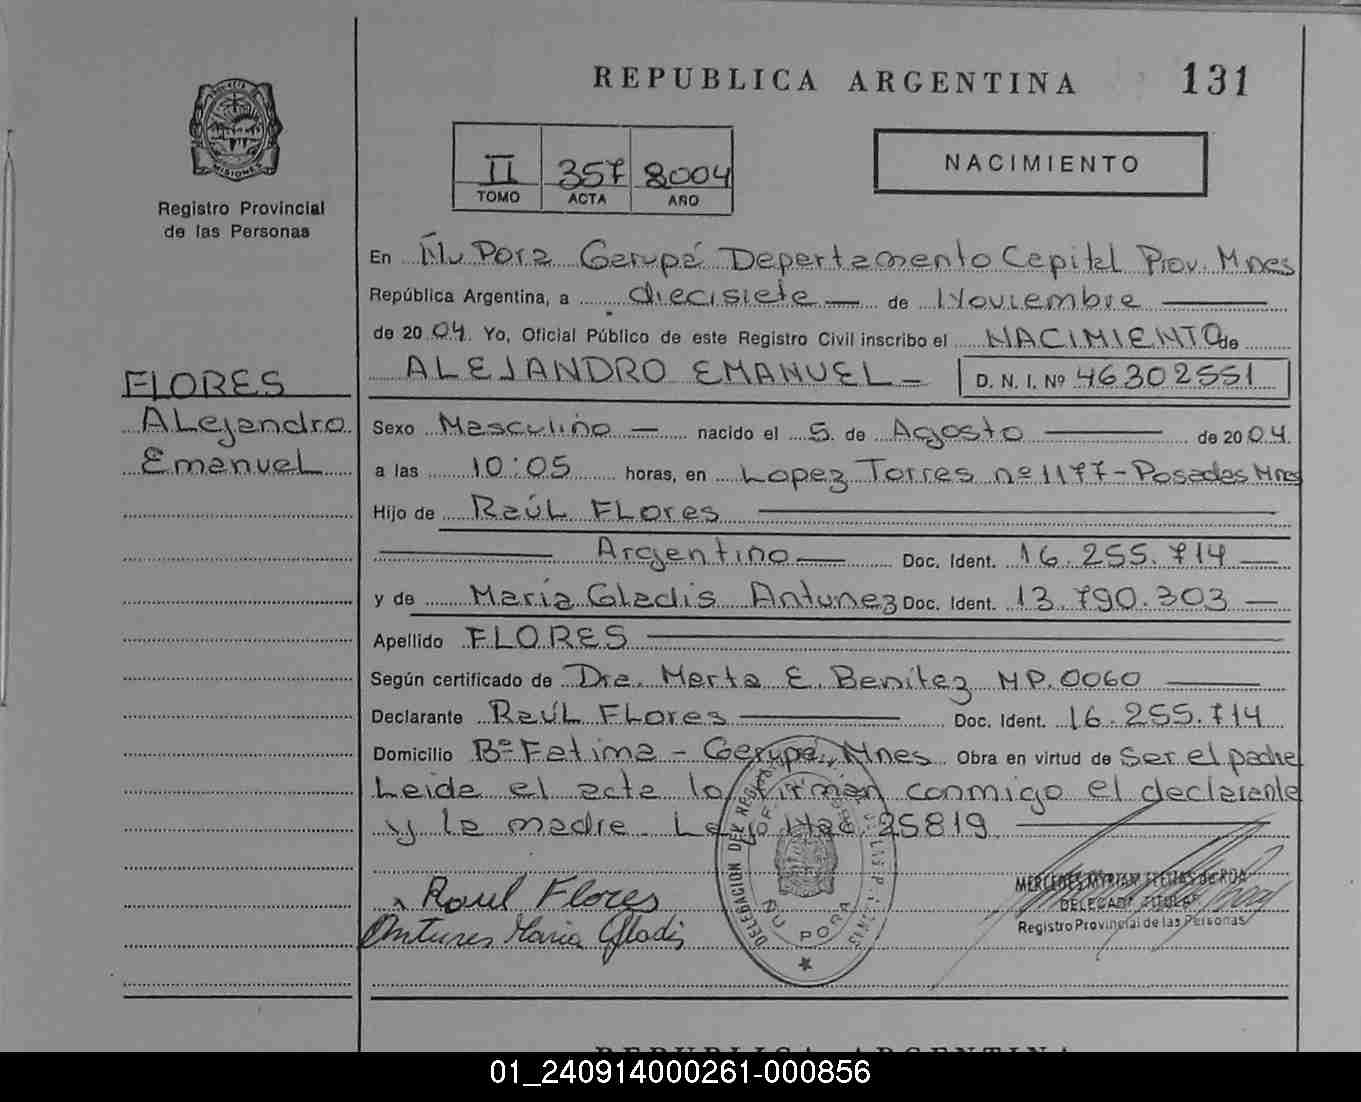 REPUBLICA ARGENTINA 131
MISIONES
Registro Provincial
de las Personas
II 357 2004
TOMO ACTA AÑO
NACIMIENTO
En Ñu Porá Garupá Departamento Capital Prov. Mnes
República Argentina, a diecisiete de Noviembre
de 2004. Yo, Oficial Público de este Registro Civil inscribo el NACIMIENTO de
ALEJANDRO EMANUEL D. N. I. Nº 46302551
FLORES
Alejandro
Emanuel
Sexo Masculino nacido el 5 de Agosto de 2004.
a las 10:05 horas, en Lopez Torres nº 1177-Posadas Mnes
Hijo de Raúl Flores
Argentino Doc. Ident. 16.255.714
y de María Gladis Antunez Doc. Ident. 13.790.303
Apellido FLORES
Según certificado de Dra. Marta E. Benítez MP.0060
Declarante Raúl Flores Doc. Ident. 16.255.714
Domicilio Bº Fatima - Garupá, Mnes Obra en virtud de Ser el padre
Leida el acta la firman conmigo el declarante
y la madre. Ley Nac 25819
Raul Flores
Antunes Maria Gladis
DELEGACION DEL
ÑU PORA
MERCEDES MYRIAM FLEITAS de ROA
DELEGADA TITULAR
Registro Provincial de las Personas
REPUBLICA ARGENTINA
01_240914000261-000856